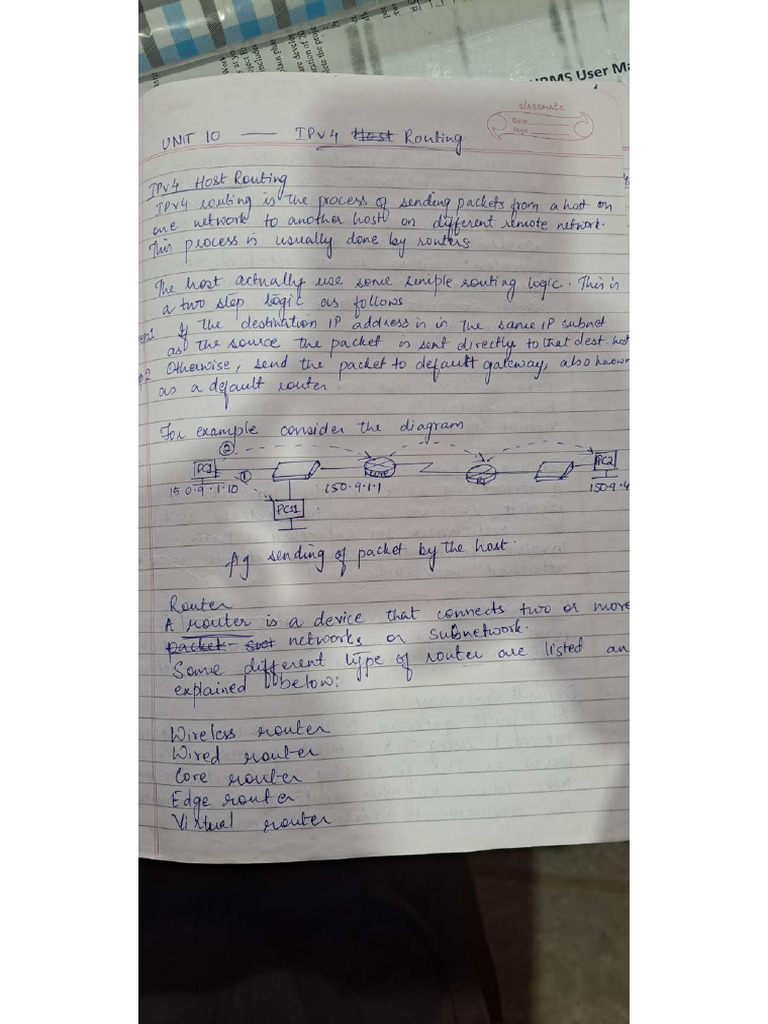 UNIT 10 — IPv4 Host Routing
classmate
Date
Page
IPv4 Host Routing
IPv4 routing is the process of sending packets from a host on
one network to another host on different remote network.
This process is usually done by routers
The host actually use some simple routing logic. This is
a two step logic as follows
If the destination IP address is in the same IP subnet
as the source the packet is sent directly to that dest. host
2 Otherwise, send the packet to default gateway, also known
as a default router
For example consider the diagram
②
PC1
①
PC11
core
R1
PC2
150.9.1.10
150.9.1.1
150.9.4
fig sending of packet by the host.
Router
A router is a device that connects two or more
packet networks or subnetwork.
Some different type of router are listed an
explained below:
Wireless router
Wired router
Core router
Edge router
Virtual router